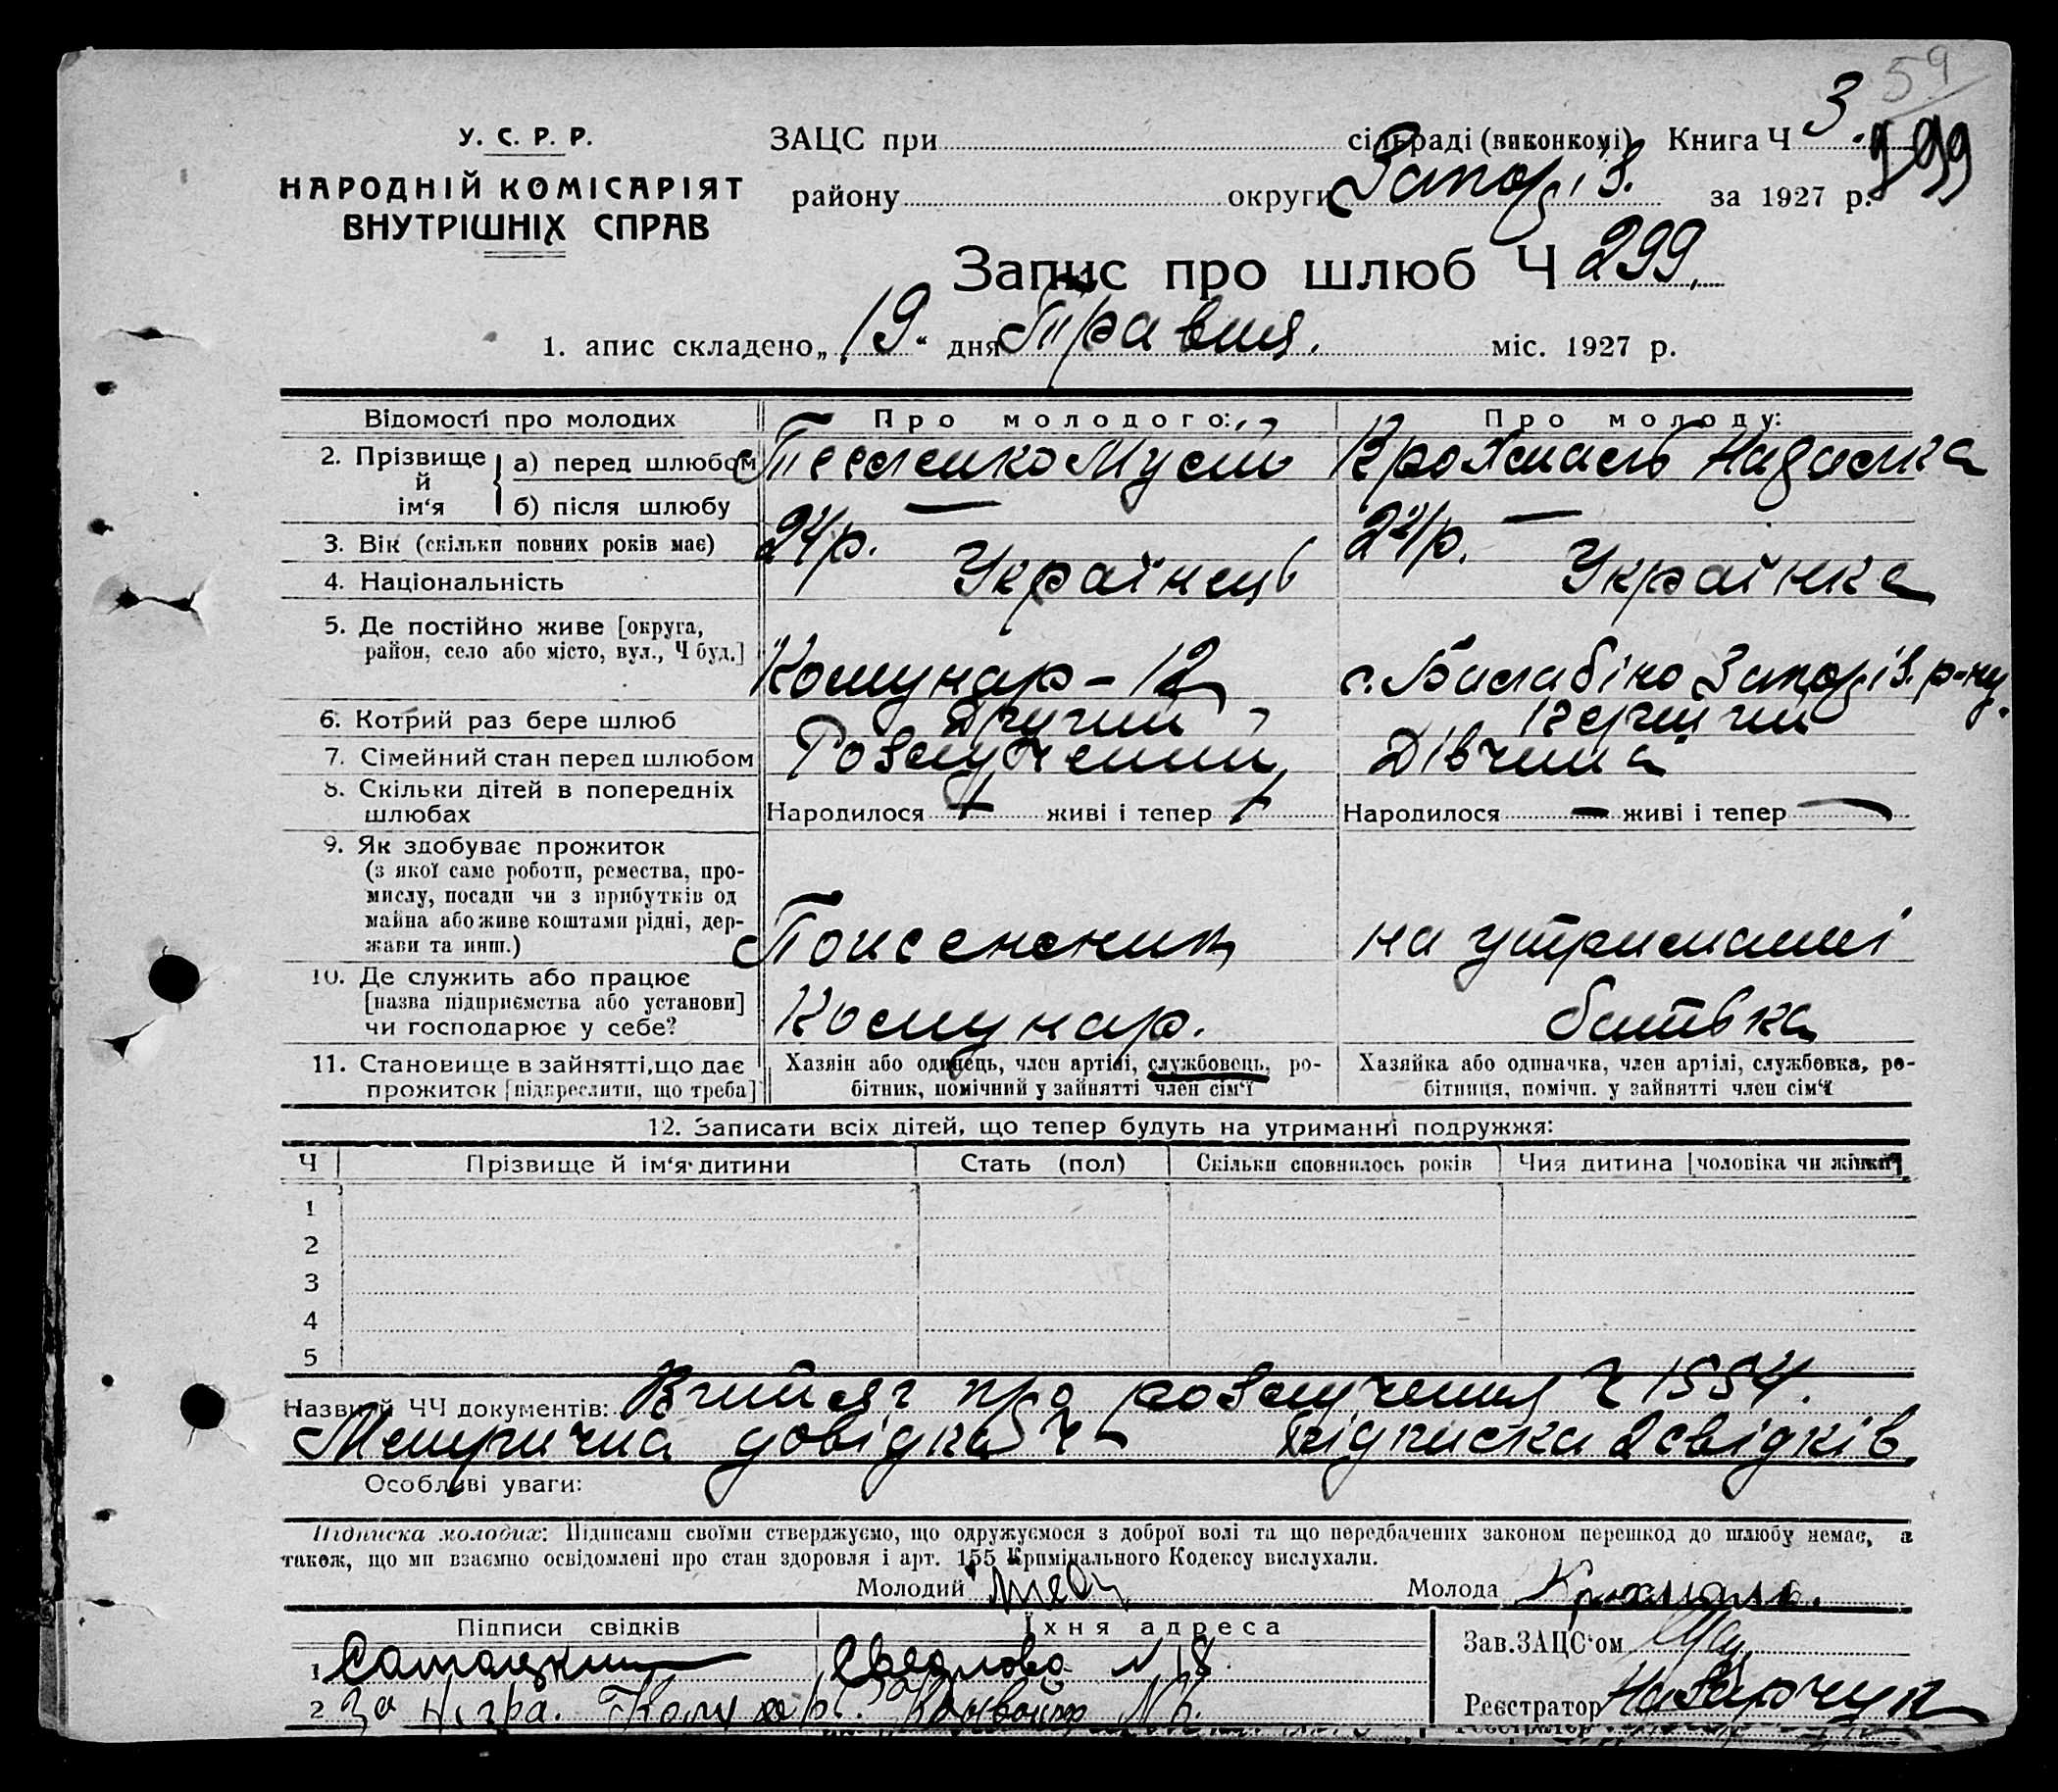 59
У. С. Р. Р.
НАРОДНІЙ КОМІСАРІЯТ
ВНУТРІШНІХ СПРАВ
ЗАЦС при сільраді (виконкомі) Книга Ч 3.
299
району округи Запоріз. за 1927 р.
Запис про шлюб Ч 299.
1. апис складено „19“ дня Травня. міс. 1927 р.
Відомості про молодих Про молодого: Про молоду:
2. Прізвище й ім‘я а) перед шлюбом Крохмаль Надежка
б) після шлюбу — —
3. Вік (скільки повних років має) 24 р. 24 р.
4. Національність Українець Українка
5. Де постійно живе [округа, район, село або місто, вул., Ч буд.] Комунар - 12 с. Балабіно Запоріз. р-ну.
6. Котрий раз бере шлюб Другий Перший
7. Сімейний стан перед шлюбом Розлучений Дівчина
8. Скільки дітей в попередніх шлюбах Народилося живі і тепер Народилося — живі і тепер —
9. Як здобуває прожиток
(з якої саме роботи, ремества, про-
мислу, посади чи з прибутків од
майна або живе коштами рідні, дер-
жави та инш.) на утриманні
10. Де служить або працює
[назва підприємства або установи]
чи господарює у себе? Комунар. батька
11. Становище в зайнятті, що дає
прожиток [підкреслити, що треба]
Хазяїн або одинець, член артілі, службовець, ро-
бітник, помічний у зайнятті член сім‘ї
Хазяйка або одиначка, член артілі, службовка, ро-
бітниця, помічн. у зайнятті член сім‘ї
12. Записати всіх дітей, що тепер будуть на утриманні подружжя:
Ч Прізвище й ім‘я дитини Стать (пол) Скільки сповнилось років Чия дитина [чоловіка чи жінки]
1
2
3
4
5
Назви й ЧЧ документів: Витяг про розлучення Ч 1554.
Метрична довідка Ч Підписка 2 свідків
Особливі уваги:
Підписка молодих: Підписами своїми стверджуємо, що одружуємося з доброї волі та що передбачених законом перешкод до шлюбу немає, а
також, що ми взаємно освідомлені про стан здоровля і арт. 155 Кримінального Кодексу вислухали.
Молодий Молода Крохмаль.
Підписи свідків Їхня адреса
1 Свердлова N 18 Зав. ЗАЦС‘ом
2 За Реєстратор Назарчук